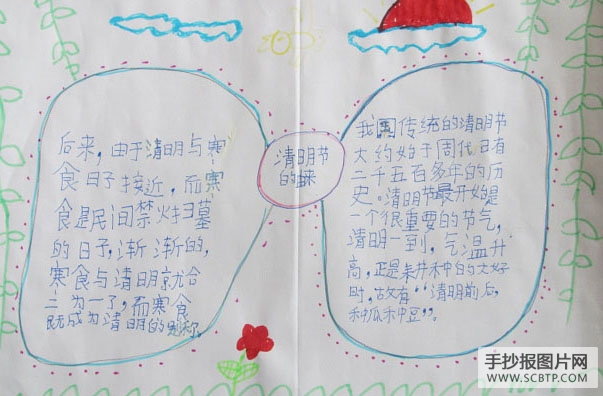 清明节
的由来
我国传统的清明节
大约始于周代日有
二千五百多年的历
史。清明节最开始是
一个很重要的节气,
清明一到,气温升
高,正是春耕种的大好
时,故有“清明前后,
种瓜种豆”。
后来,由于清明与寒
食日子接近,而寒
食是民间禁火扫墓
的日子,渐渐的,
寒食与清明就合
二为一了,而寒食
既成为清明的别称
手抄报图片网
WWW.SCBTP.COM